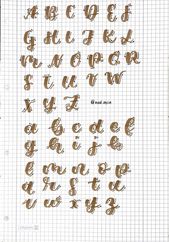 A B C D E F
G H I J K L
M N O P Q R
S T U V W
X Y Z
a b c d e f
g h i j k
l m n o p
q r s t u
v w x y z